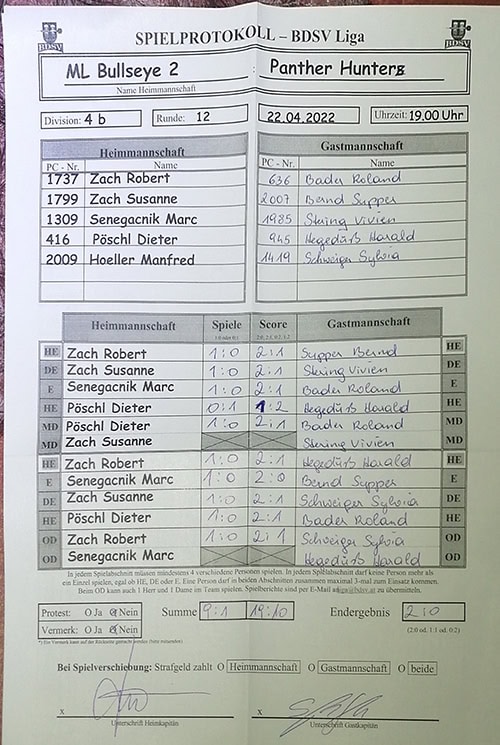 SPIELPROTOKOLL – BDSV Liga
BDSV BDSV
ML Bullseye 2 : Panther Hunters
Name Heimmannschaft
Division: 4 b Runde: 12 22.04.2022 Uhrzeit: 19.00 Uhr
Heimmannschaft Gastmannschaft
PC - Nr. Name PC - Nr. Name
1737 Zach Robert 636 Bader Roland
1799 Zach Susanne 2007 Bernd Supper
1309 Senegacnik Marc 1985 Skring Vivien
416 Pöschl Dieter 945 Hegedüß Harald
2009 Hoeller Manfred 1419 Schweiger Sylvia
Heimmannschaft Spiele Score Gastmannschaft
HE Zach Robert 1:0 2:1 Supper Bernd HE
DE Zach Susanne 1:0 2:1 Skring Vivien DE
E Senegacnik Marc 1:0 2:1 Bader Roland E
HE Pöschl Dieter 0:1 1:2 Hegedüß Harald HE
MD Pöschl Dieter 1:0 2:1 Bader Roland MD
MD Zach Susanne Skring Vivien MD
HE Zach Robert 1:0 2:1 Hegedüß Harald HE
E Senegacnik Marc 1:0 2:0 Bernd Supper E
DE Zach Susanne 1:0 2:1 Schweiger Sylvia DE
HE Pöschl Dieter 1:0 2:1 Bader Roland HE
OD Zach Robert 1:0 2:1 Schweiger Sylvia OD
OD Senegacnik Marc Hegedüß Harald OD
In jedem Spielabschnitt müssen mindestens 4 verschiedene Personen spielen. In jedem Spielabschnitt darf keine Person mehr als
ein Einzel spielen, egal ob HE, DE oder E. Eine Person darf in beiden Abschnitten zusammen maximal 3-mal zum Einsatz kommen.
Beim OD kann auch 1 Herr und 1 Dame im Team spielen. Spielberichte sind per E-Mail an liga@bdsv.at zu übermitteln.
Protest: O Ja O Nein Summe 9:1 19:10 Endergebnis 2:0
Vermerk: O Ja O Nein (2:0 od. 1:1 od. 0:2)
*) Ein Vermerk kann auf der Rückseite gemacht werden (bitte umseitig)
Bei Spielverschiebung: Strafgeld zahlt O Heimmannschaft O Gastmannschaft O beide
x x
Unterschrift Heimkapitän Unterschrift Gastkapitän